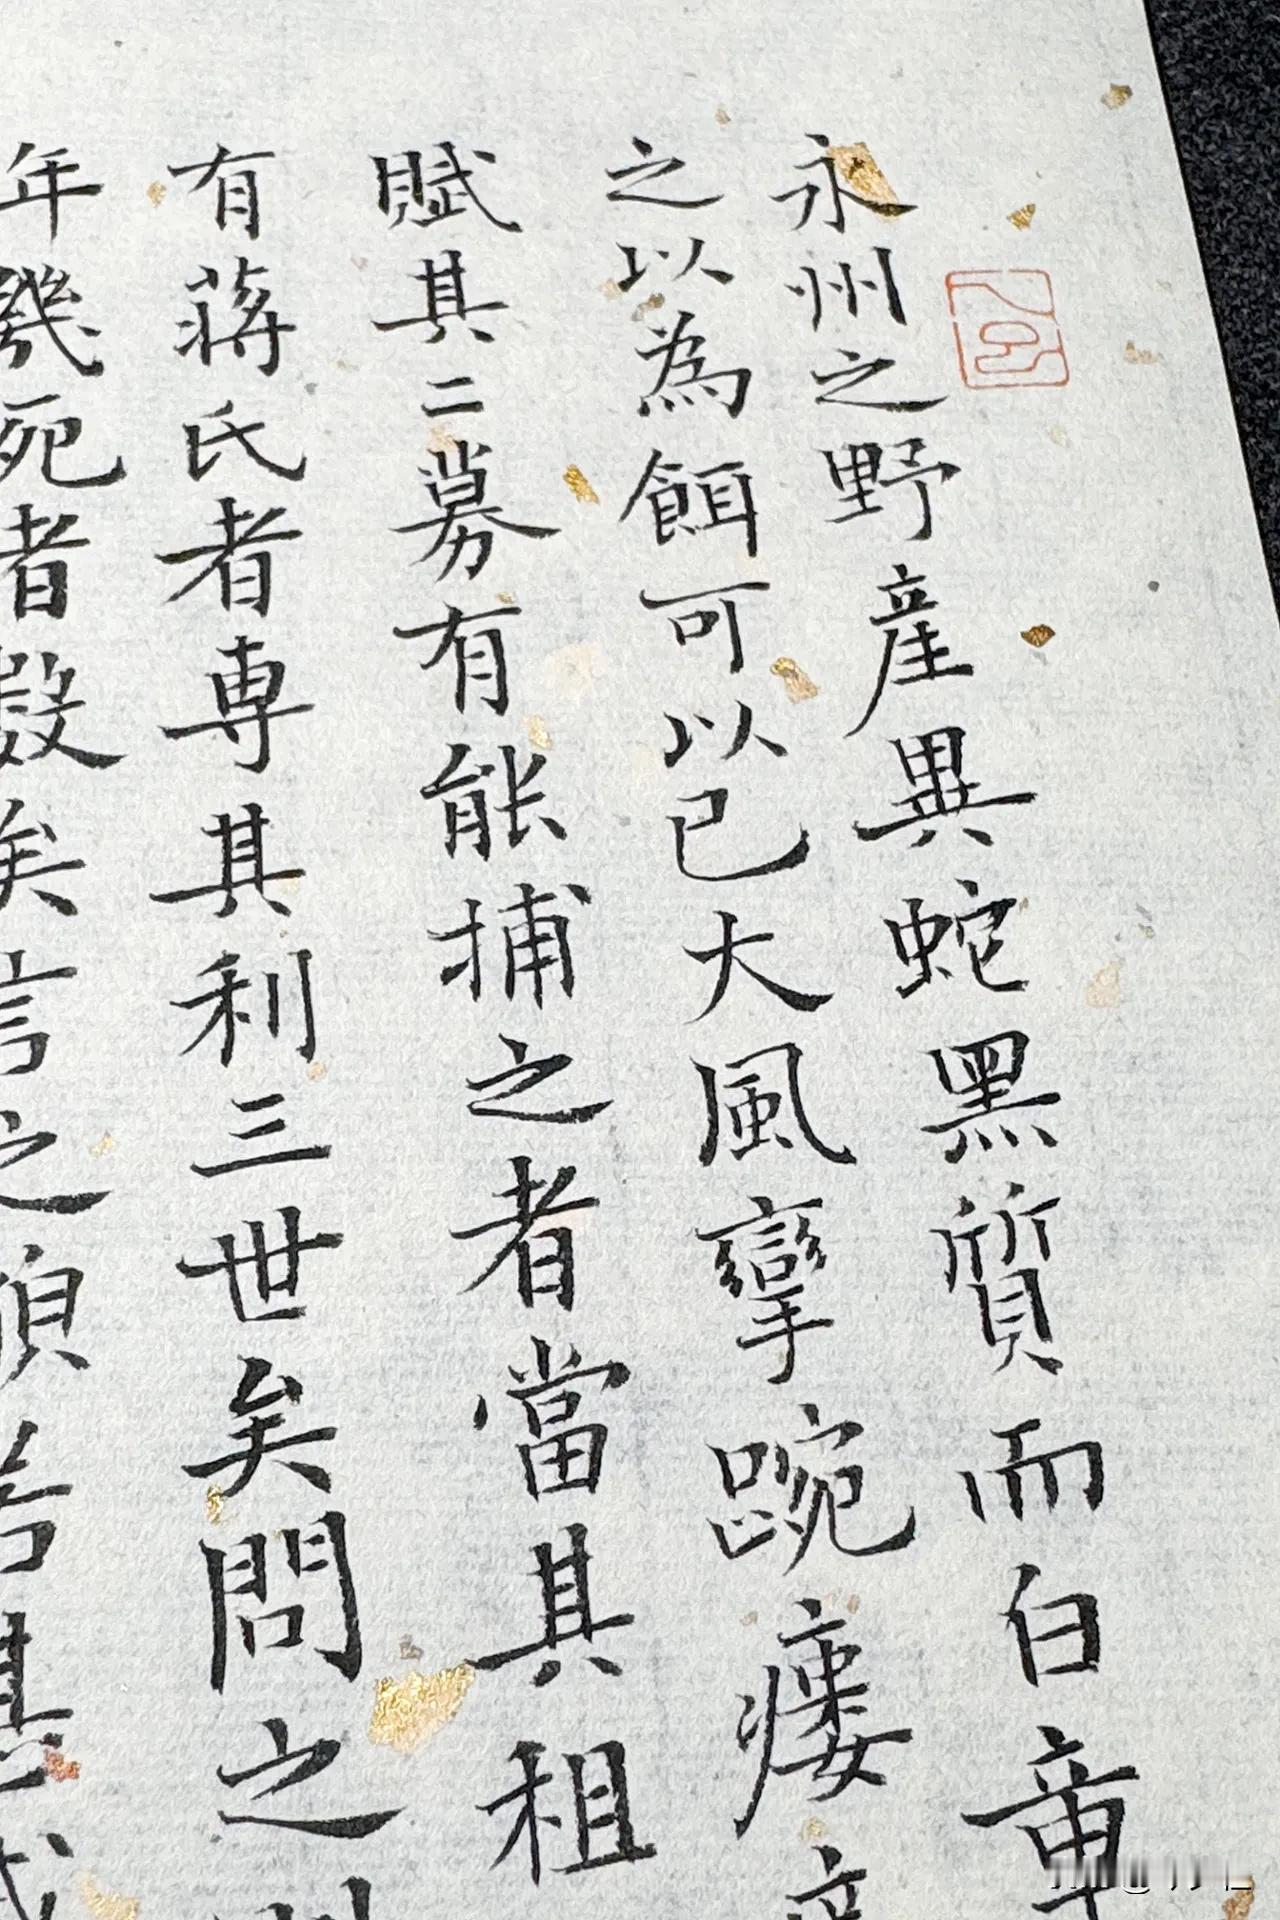 永州之野產異蛇黑質而白章
之以為餌可以已大風攣踠瘻
賦其二募有能捕之者當其租
有蔣氏者專其利三世矣問之則
年幾死者數矣言之貌若甚慼